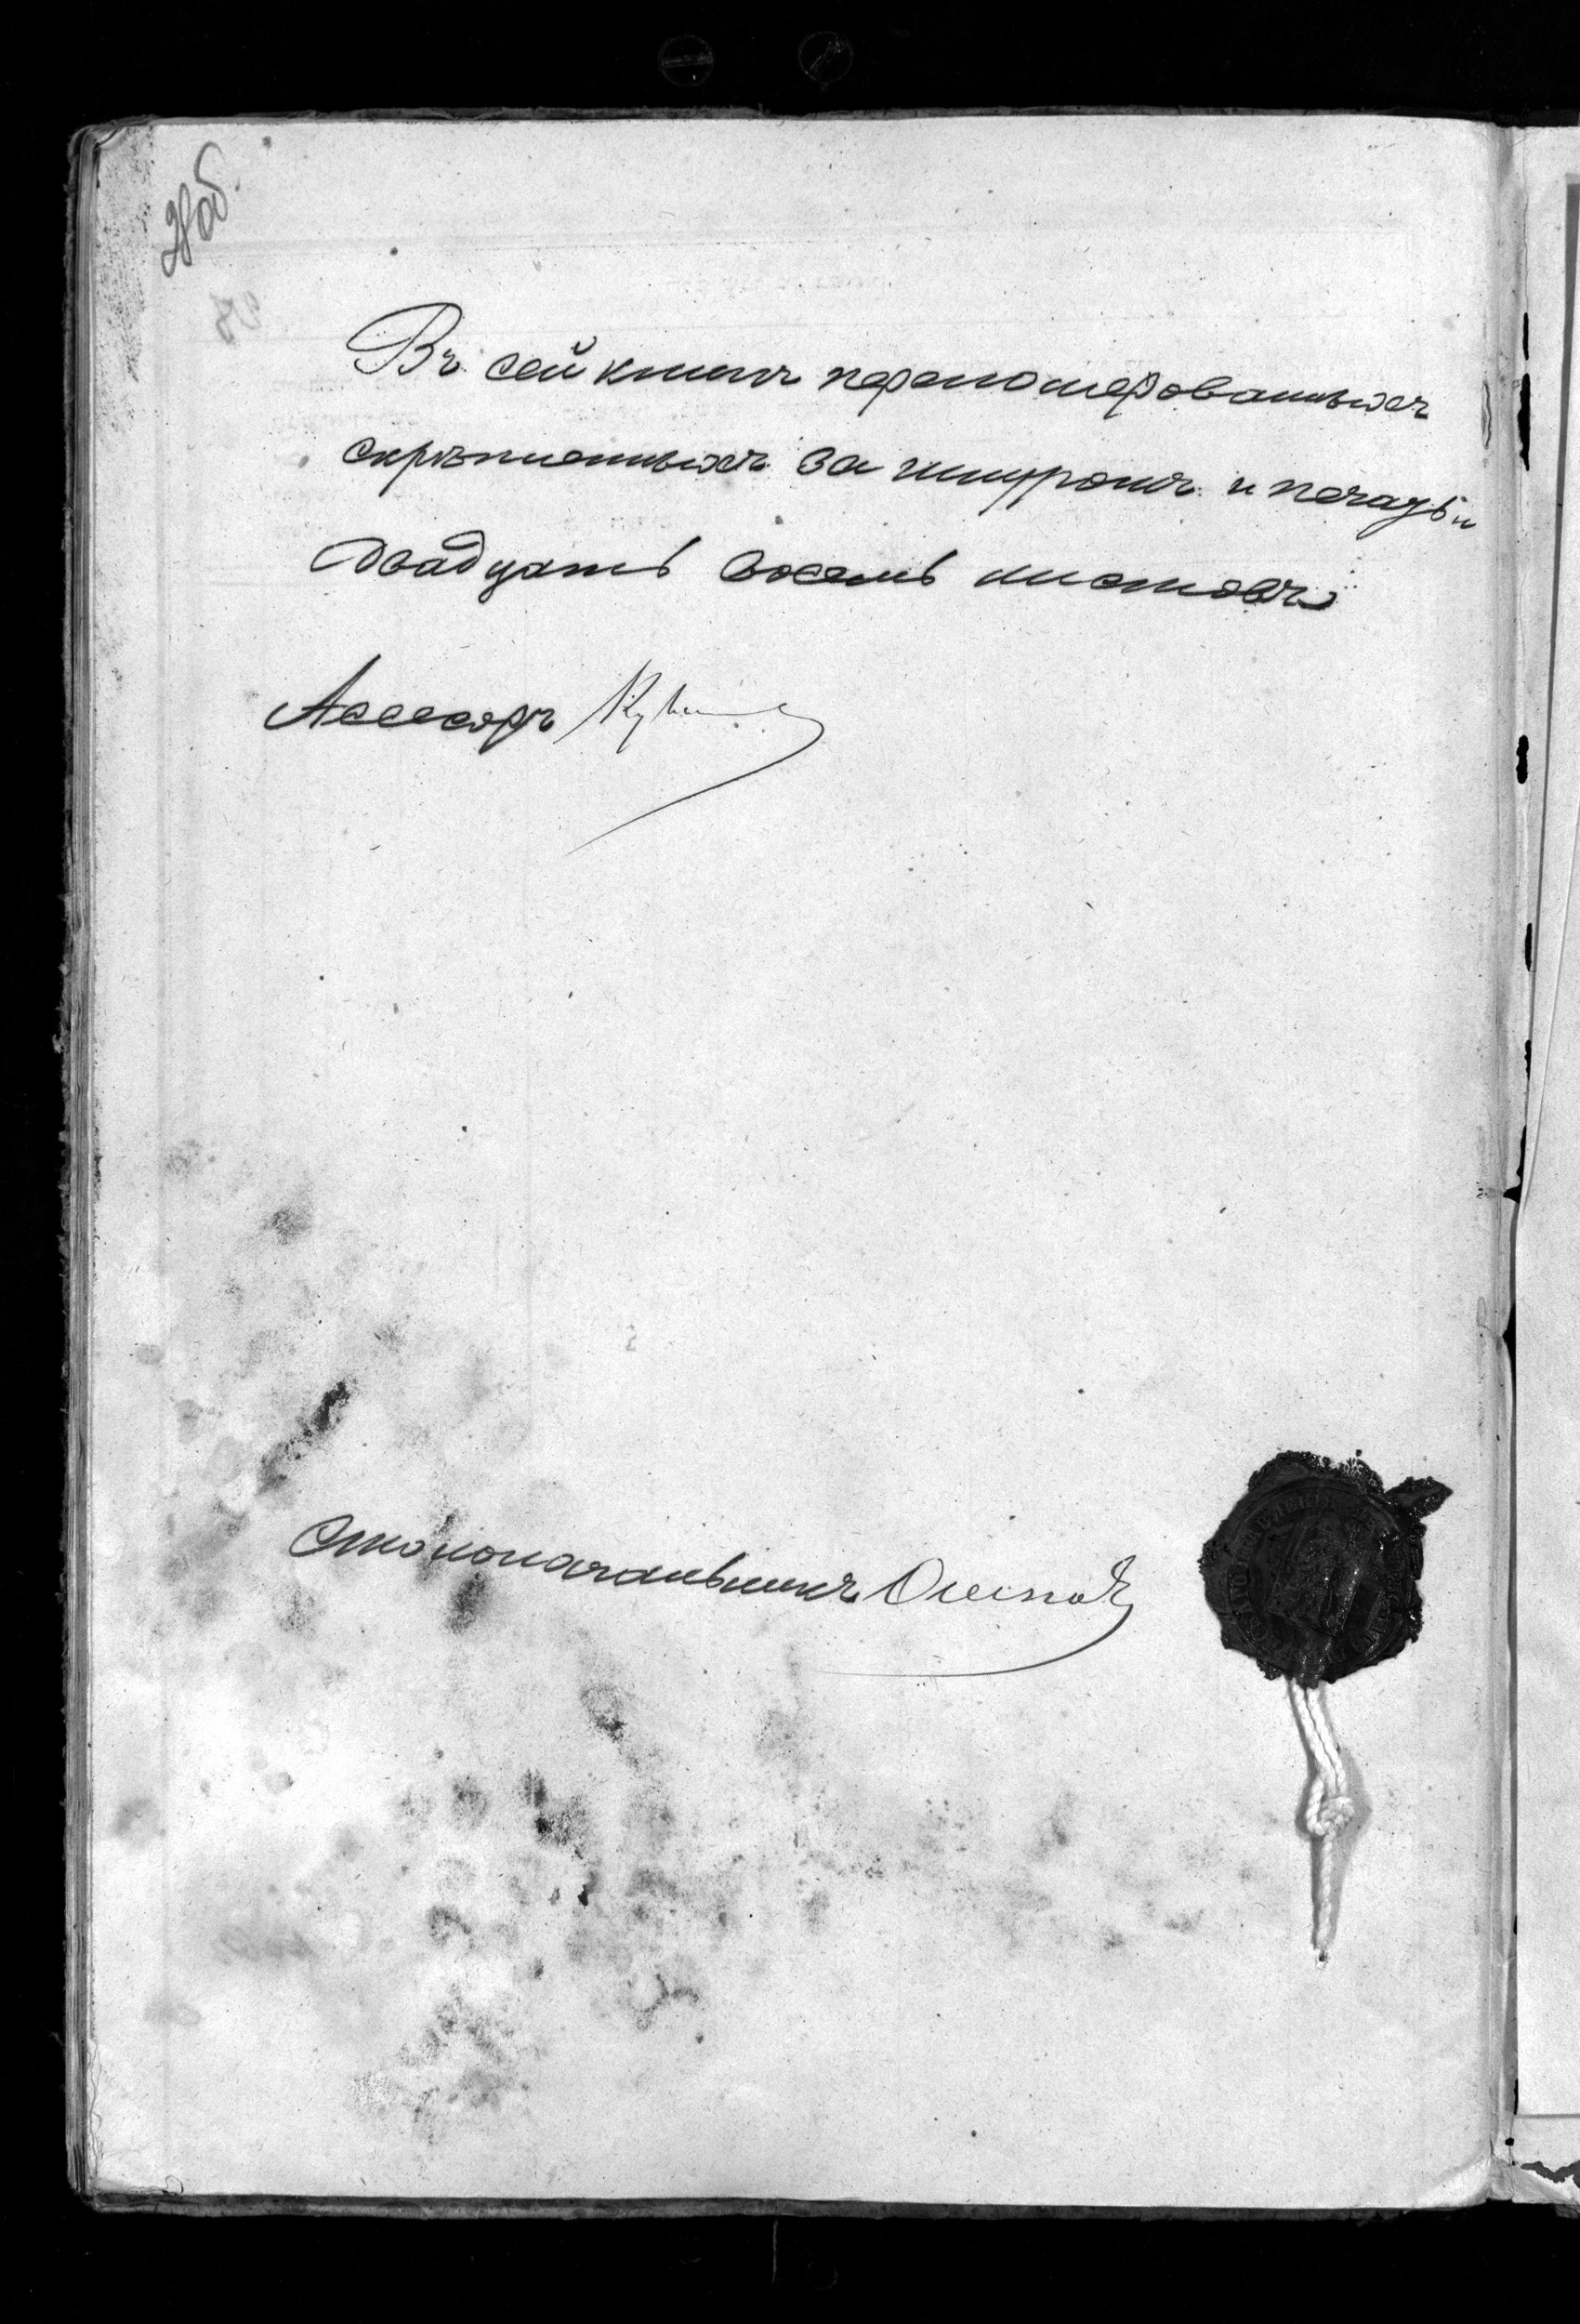 28 об.
Въ сей книгѣ переномерованныхъ
скрѣпленныхъ за шнуромъ и печатью
двадцать восемь листовъ
Ассесоръ
Столоначальникъ Осиповъ